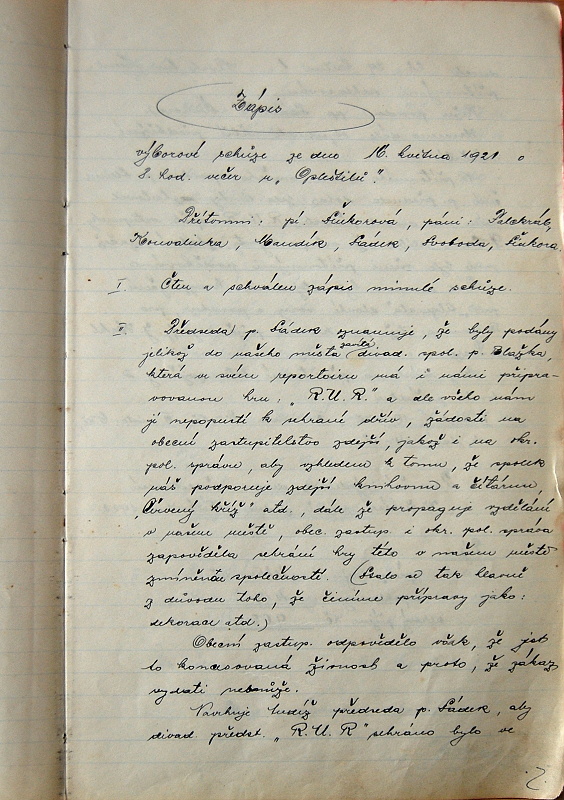 Zápis
výborové schůze ze dne 16. května 1921 o
8. hod. večer u „Opleštilů".
Přítomni: pí. Šůkorová, páni: Palekráb,
Konvalinka, Mandík, Sádek, Svoboda, Šůkora.
I. Čten a schválen zápis minulé schůze.
II. Předseda p. Sádek oznamuje, že byly podány
jelikož do našeho města zavítá divad. spol. p. Blažka,
která ve svém repertoiru má i námi připra-
vovanou hru, „R.U.R." a dle všeho nám
ji nepopustí k sehrání dřív, žádosti na
obecní zastupitelstvo zdejší, jakož i na okr.
pol. správu, aby vzhledem k tomu, že spolek
náš podporuje zdejší knihovnu a čítárnu,
„Červený kříž" atd., dále že propaguje vzdělání
v našem městě, obec. zastup. i okr. pol. správa
zapověděla sehrání hry této v našem městě
zmíněnou společností. (Stalo se tak hlavně
z důvodu toho, že činíme přípravy jako:
dekorace atd.)
Obecní zastup. odpovědělo však, že jest
to koncesovaná živnost a proto, že zákaz
vydati nemůže.
Navrhuje tudíž předseda p. Sádek, aby
divad. předst. „R.U.R" sehráno bylo ve